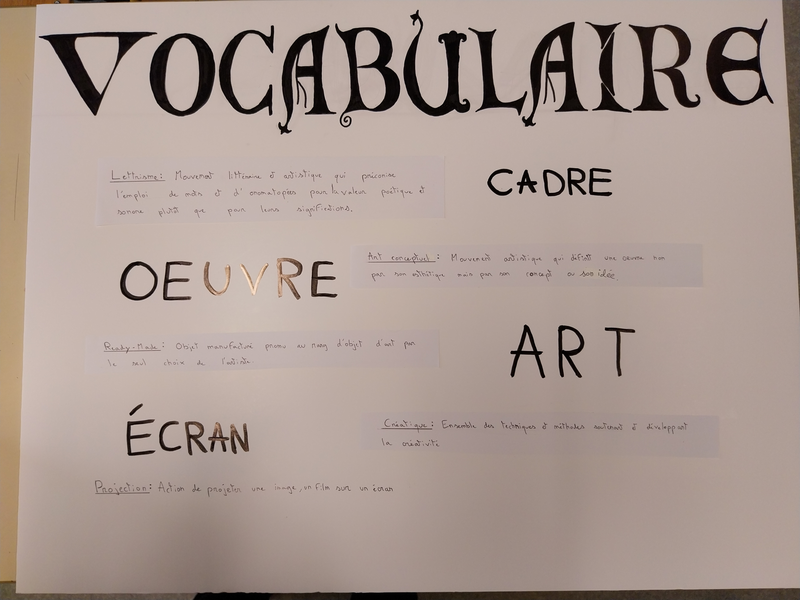 VOCABULAIRE
Lettrisme : Mouvement littéraire et artistique qui préconise
l'emploi de mots et d'onomatopées pour la valeur poétique et
sonore plutôt que pour leurs significations.
CADRE
OEUVRE
Art conceptuel : Mouvement artistique qui définit une oeuvre non
par son esthétique mais par son concept ou son idée.
Ready-Made : Objet manufacturé promu au rang d'objet d'art par
le seul choix de l'artiste.
ART
ÉCRAN
Créatique : Ensemble des techniques et méthodes à développer
la créativité
Projection : Action de projeter une image, un film sur un écran